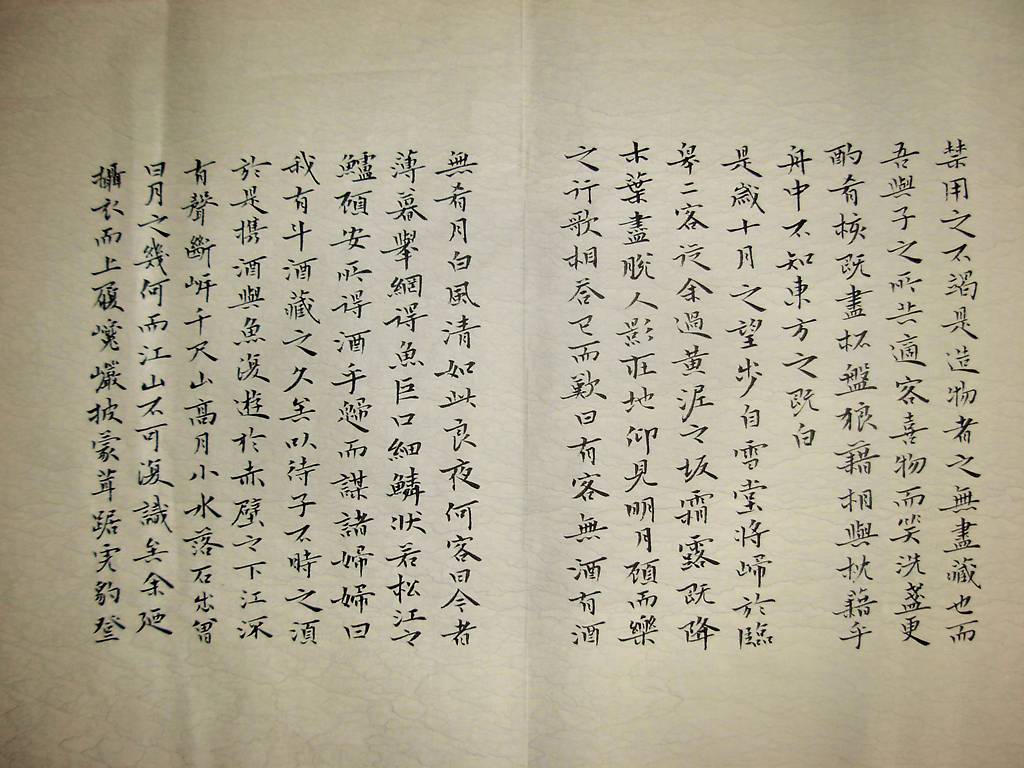 禁用之不竭是造物者之無盡藏也而
吾與子之所共適客喜物而笑洗盞更
酌肴核既盡杯盤狼藉相與枕藉乎
舟中不知東方之既白
是歲十月之望步自雪堂將歸於臨
皋二客從余過黃泥之坂霜露既降
木葉盡脫人影在地仰見明月顧而樂
之行歌相答已而歎曰有客無酒有酒
無肴月白風清如此良夜何客曰今者
薄暮舉網得魚巨口細鱗狀若松江之
鱸顧安所得酒乎歸而謀諸婦婦曰
我有斗酒藏之久矣以待子不時之須
於是攜酒與魚復遊於赤壁之下江流
有聲斷岸千尺山高月小水落石出曾
日月之幾何而江山不可復識矣余廼
攝衣而上履巉巖披蒙茸踞虎豹登